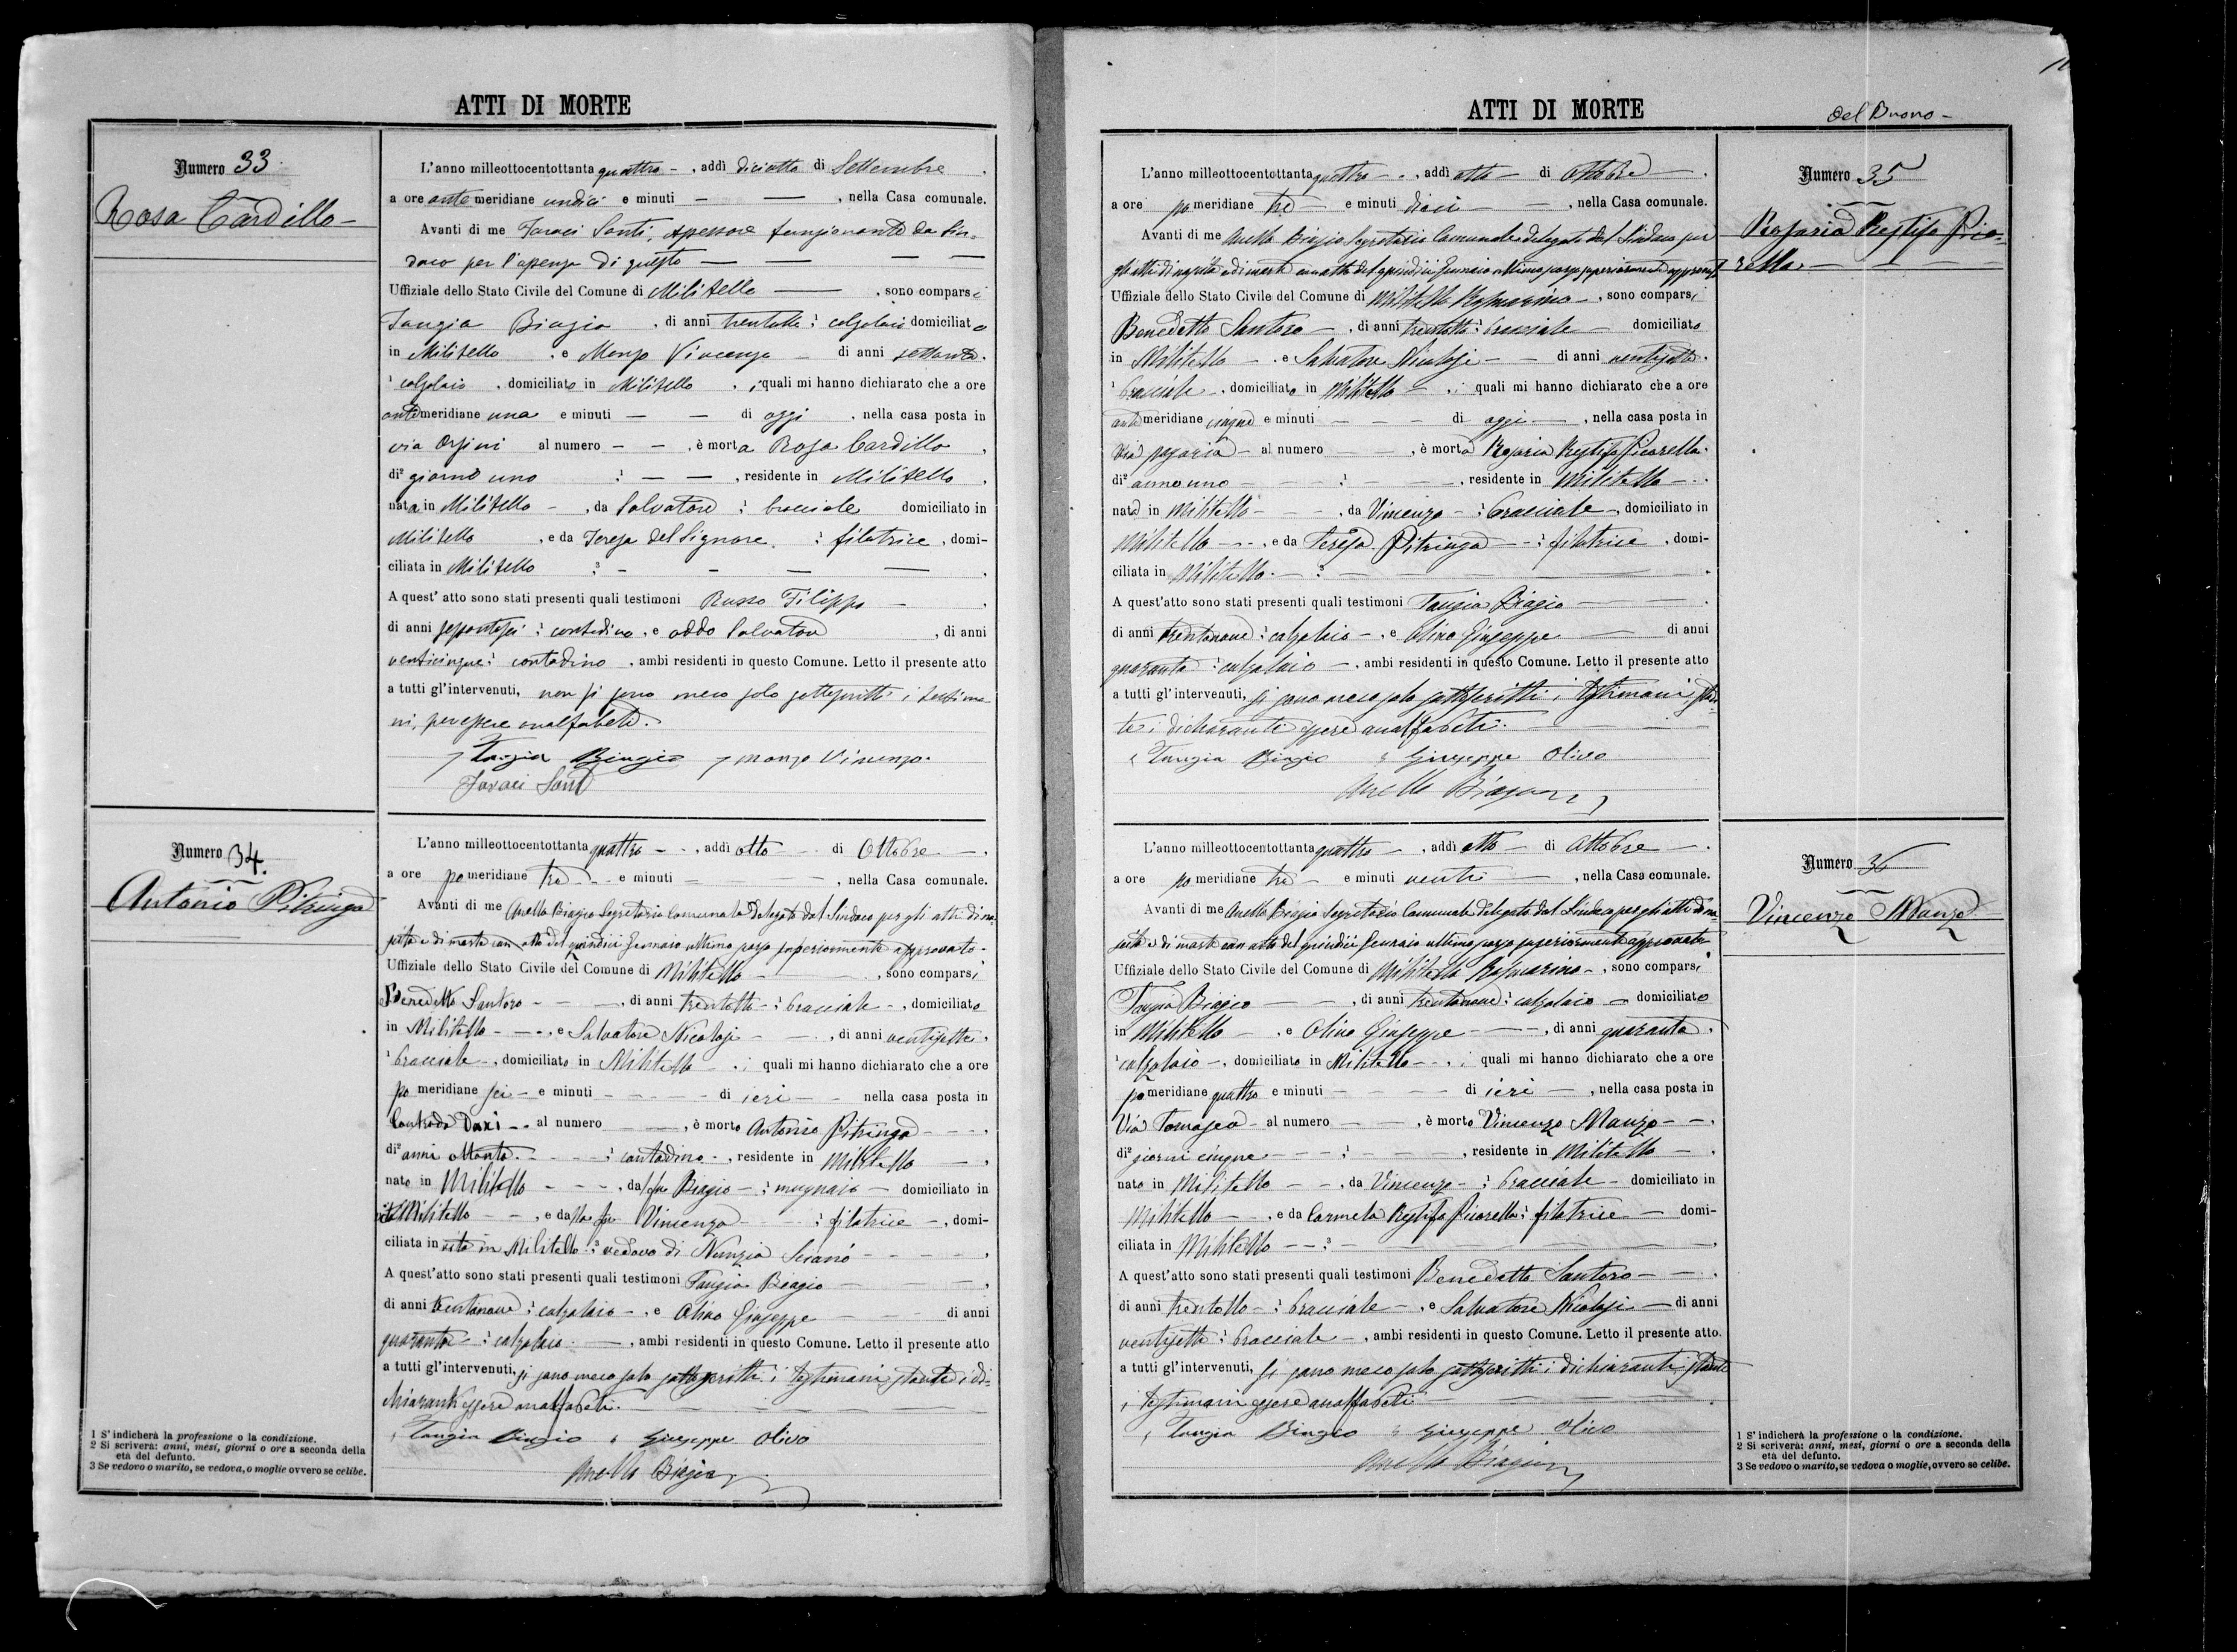 ATTI DI MORTE
Numero 33
Rosa Cardillo
L'anno milleottocentottanta quattro, addì diciotto di Settembre
a ore ante meridiane undici e minuti — —, nella Casa comunale.
Avanti di me Faraci Santi, Assessore funzionante da Sin-
daco per l'assenza di questo — — — —
Uffiziale dello Stato Civile del Comune di Militello —, sono comparsi
Tangia Biagio, di anni trentotto, calzolaio domiciliato
in Militello, e Manzo Vincenzo di anni settanta
calzolaio, domiciliato in Militello, i quali mi hanno dichiarato che a ore
antimeridiane una e minuti — — di oggi, nella casa posta in
via Orsini al numero — —, è morta Rosa Cardillo,
di giorno uno — —, residente in Militello,
nata in Militello, da Salvatore, bracciale domiciliato in
Militello, e da Teresa del Signore, filatrice, domi-
ciliata in Militello — — — —
A quest'atto sono stati presenti quali testimoni Russo Filippo —
di anni sessantasei, contadino, e Oddo Salvatore, di anni
venticinque, contadino, ambi residenti in questo Comune. Letto il presente atto
a tutti gl'intervenuti, non si sono meco solo sottoscritti i testimo-
ni, per essere analfabeti.
Tangia Biagio Manzo Vincenzo
Faraci Santi
Numero 34.
Antonio Pitringa
L'anno milleottocentottanta quattro —, addì otto — di Ottobre —.
a ore po meridiane tre — e minuti —, nella Casa comunale.
Avanti di me Anello Biagio Segretario Comunale Delegato dal Sindaco per gli atti di na-
scita e di morte con atto del quindici Gennaio ultimo passo superiormente approvato
Uffiziale dello Stato Civile del Comune di Militello —, sono comparsi
Benedetto Santoro —, di anni trentotto, bracciale —, domiciliato
in Militello —, e Salvatore Nicolosi —, di anni ventisette,
bracciale —, domiciliato in Militello —, i quali mi hanno dichiarato che a ore
po meridiane sei — e minuti — — di ieri — nella casa posta in
Contrada Daxi — al numero —, è morto Antonio Pitringa —,
di anni ottanta —, contadino —, residente in Militello —,
nato in Militello —, da fu Biagio —, mugnaio — domiciliato in
vita Militello —, e dalla fu Vincenza —, filatrice —, domi-
ciliata in vita in Militello, vedovo di Nunzia Scianò —
A quest'atto sono stati presenti quali testimoni Tangia Biagio —,
di anni trentanove, calzolaio —, e Olivo Giuseppe — di anni
quaranta, calzolaio —, ambi residenti in questo Comune. Letto il presente atto
a tutti gl'intervenuti, si sono meco solo sottoscritti i testimoni, stante i di-
chiaranti essere analfabeti.
Tangia Biagio Giuseppe Olivo
Anello Biagio
1 S'indicherà la professione o la condizione.
2 Si scriverà: anni, mesi, giorni o ore a seconda della
età del defunto.
3 Se vedovo o marito, se vedova, o moglie ovvero se celibe.
ATTI DI MORTE
del Buono —
Numero 35
Rosaria Restifo Pico-
rella —
L'anno milleottocentottanta quattro —, addì otto — di Ottobre —.
a ore po meridiane tre — e minuti dieci —, nella Casa comunale.
Avanti di me Anello Biagio Segretario Comunale delegato dal Sindaco per
gli atti di nascita e di morte con atto del quindici Gennaio ultimo passo superiormente approvato
Uffiziale dello Stato Civile del Comune di Militello Rosmarino —, sono comparsi
Benedetto Santoro —, di anni trentotto, bracciale — domiciliato
in Militello —, e Salvatore Nicolosi — di anni ventisette,
bracciale —, domiciliato in Militello —, i quali mi hanno dichiarato che a ore
anti meridiane cinque e minuti — — — di oggi —, nella casa posta in
Via — al numero — —, è morta Rosaria Restifo Picorella
di anno uno — —, residente in Militello —
nata in Militello —, da Vincenzo —, bracciale —, domiciliato in
Militello —, e da Teresa Pitringa —, filatrice, domi-
ciliata in Militello —
A quest'atto sono stati presenti quali testimoni Tangia Biagio —
di anni trentanove, calzolaio —, e Olivo Giuseppe — di anni
quaranta, calzolaio —, ambi residenti in questo Comune. Letto il presente atto
a tutti gl'intervenuti, si sono meco solo sottoscritti i testimoni, stan-
te i dichiaranti essere analfabeti.
Tangia Biagio Giuseppe Olivo
Anello Biagio
Numero 36
Vincenzo Manzo
L'anno milleottocentottanta quattro —, addì otto — di Ottobre —.
a ore po meridiane tre — e minuti venti —, nella Casa comunale.
Avanti di me Anello Biagio Segretario Comunale delegato dal Sindaco per gli atti di na-
scita e di morte con atto del quindici Gennaio ultimo passo superiormente approvato
Uffiziale dello Stato Civile del Comune di Militello Rosmarino —, sono comparsi
Tangia Biagio —, di anni trentanove, calzolaio — domiciliato
in Militello —, e Olivo Giuseppe —, di anni quaranta,
calzolaio —, domiciliato in Militello —, i quali mi hanno dichiarato che a ore
po meridiane quattro e minuti — — di ieri —, nella casa posta in
Via Tomaseo — al numero — —, è morto Vincenzo Manzo —,
di giorni cinque — —, residente in Militello —,
nato in Militello —, da Vincenzo —, bracciale — domiciliato in
Militello —, e da Carmela Restifo Picorella, filatrice — domi-
ciliata in Militello —
A quest'atto sono stati presenti quali testimoni Benedetto Santoro —,
di anni trentotto —, bracciale —, e Salvatore Nicolosi — di anni
ventisette, bracciale —, ambi residenti in questo Comune. Letto il presente atto
a tutti gl'intervenuti, si sono meco solo sottoscritti i dichiaranti, stante
i testimoni essere analfabeti —
Tangia Biagio Giuseppe Olivo
Anello Biagio
1 S'indicherà la professione o la condizione.
2 Si scriverà: anni, mesi, giorni o ore a seconda della
età del defunto.
3 Se vedovo o marito, se vedova o moglie, ovvero se celibe.